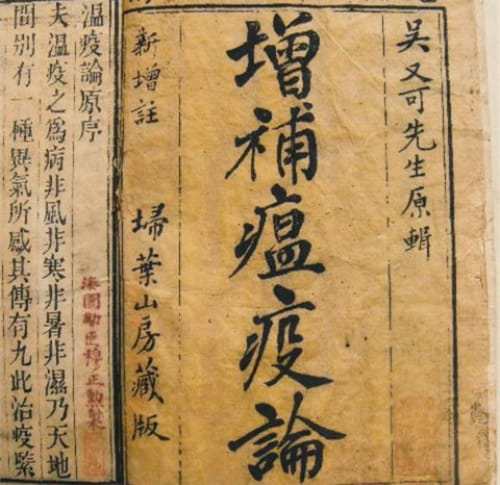 吳又可先生原輯
增補瘟疫論
新增註　埽葉山房藏版
溫疫論原序
夫溫疫之爲病非風非寒非暑非濕乃天地
間別有一種異氣所感其傳有九此治疫緊